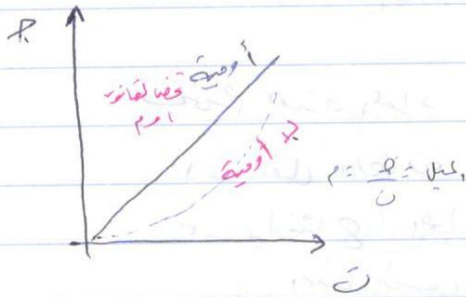 جـ
أومية
تخضع لقانون
أوم
لا أومية
الميل = جـ / ت = م
ت